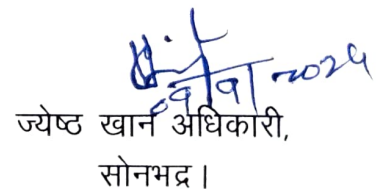 ज्येष्ठ खान अधिकारी,
सोनभद्र ।